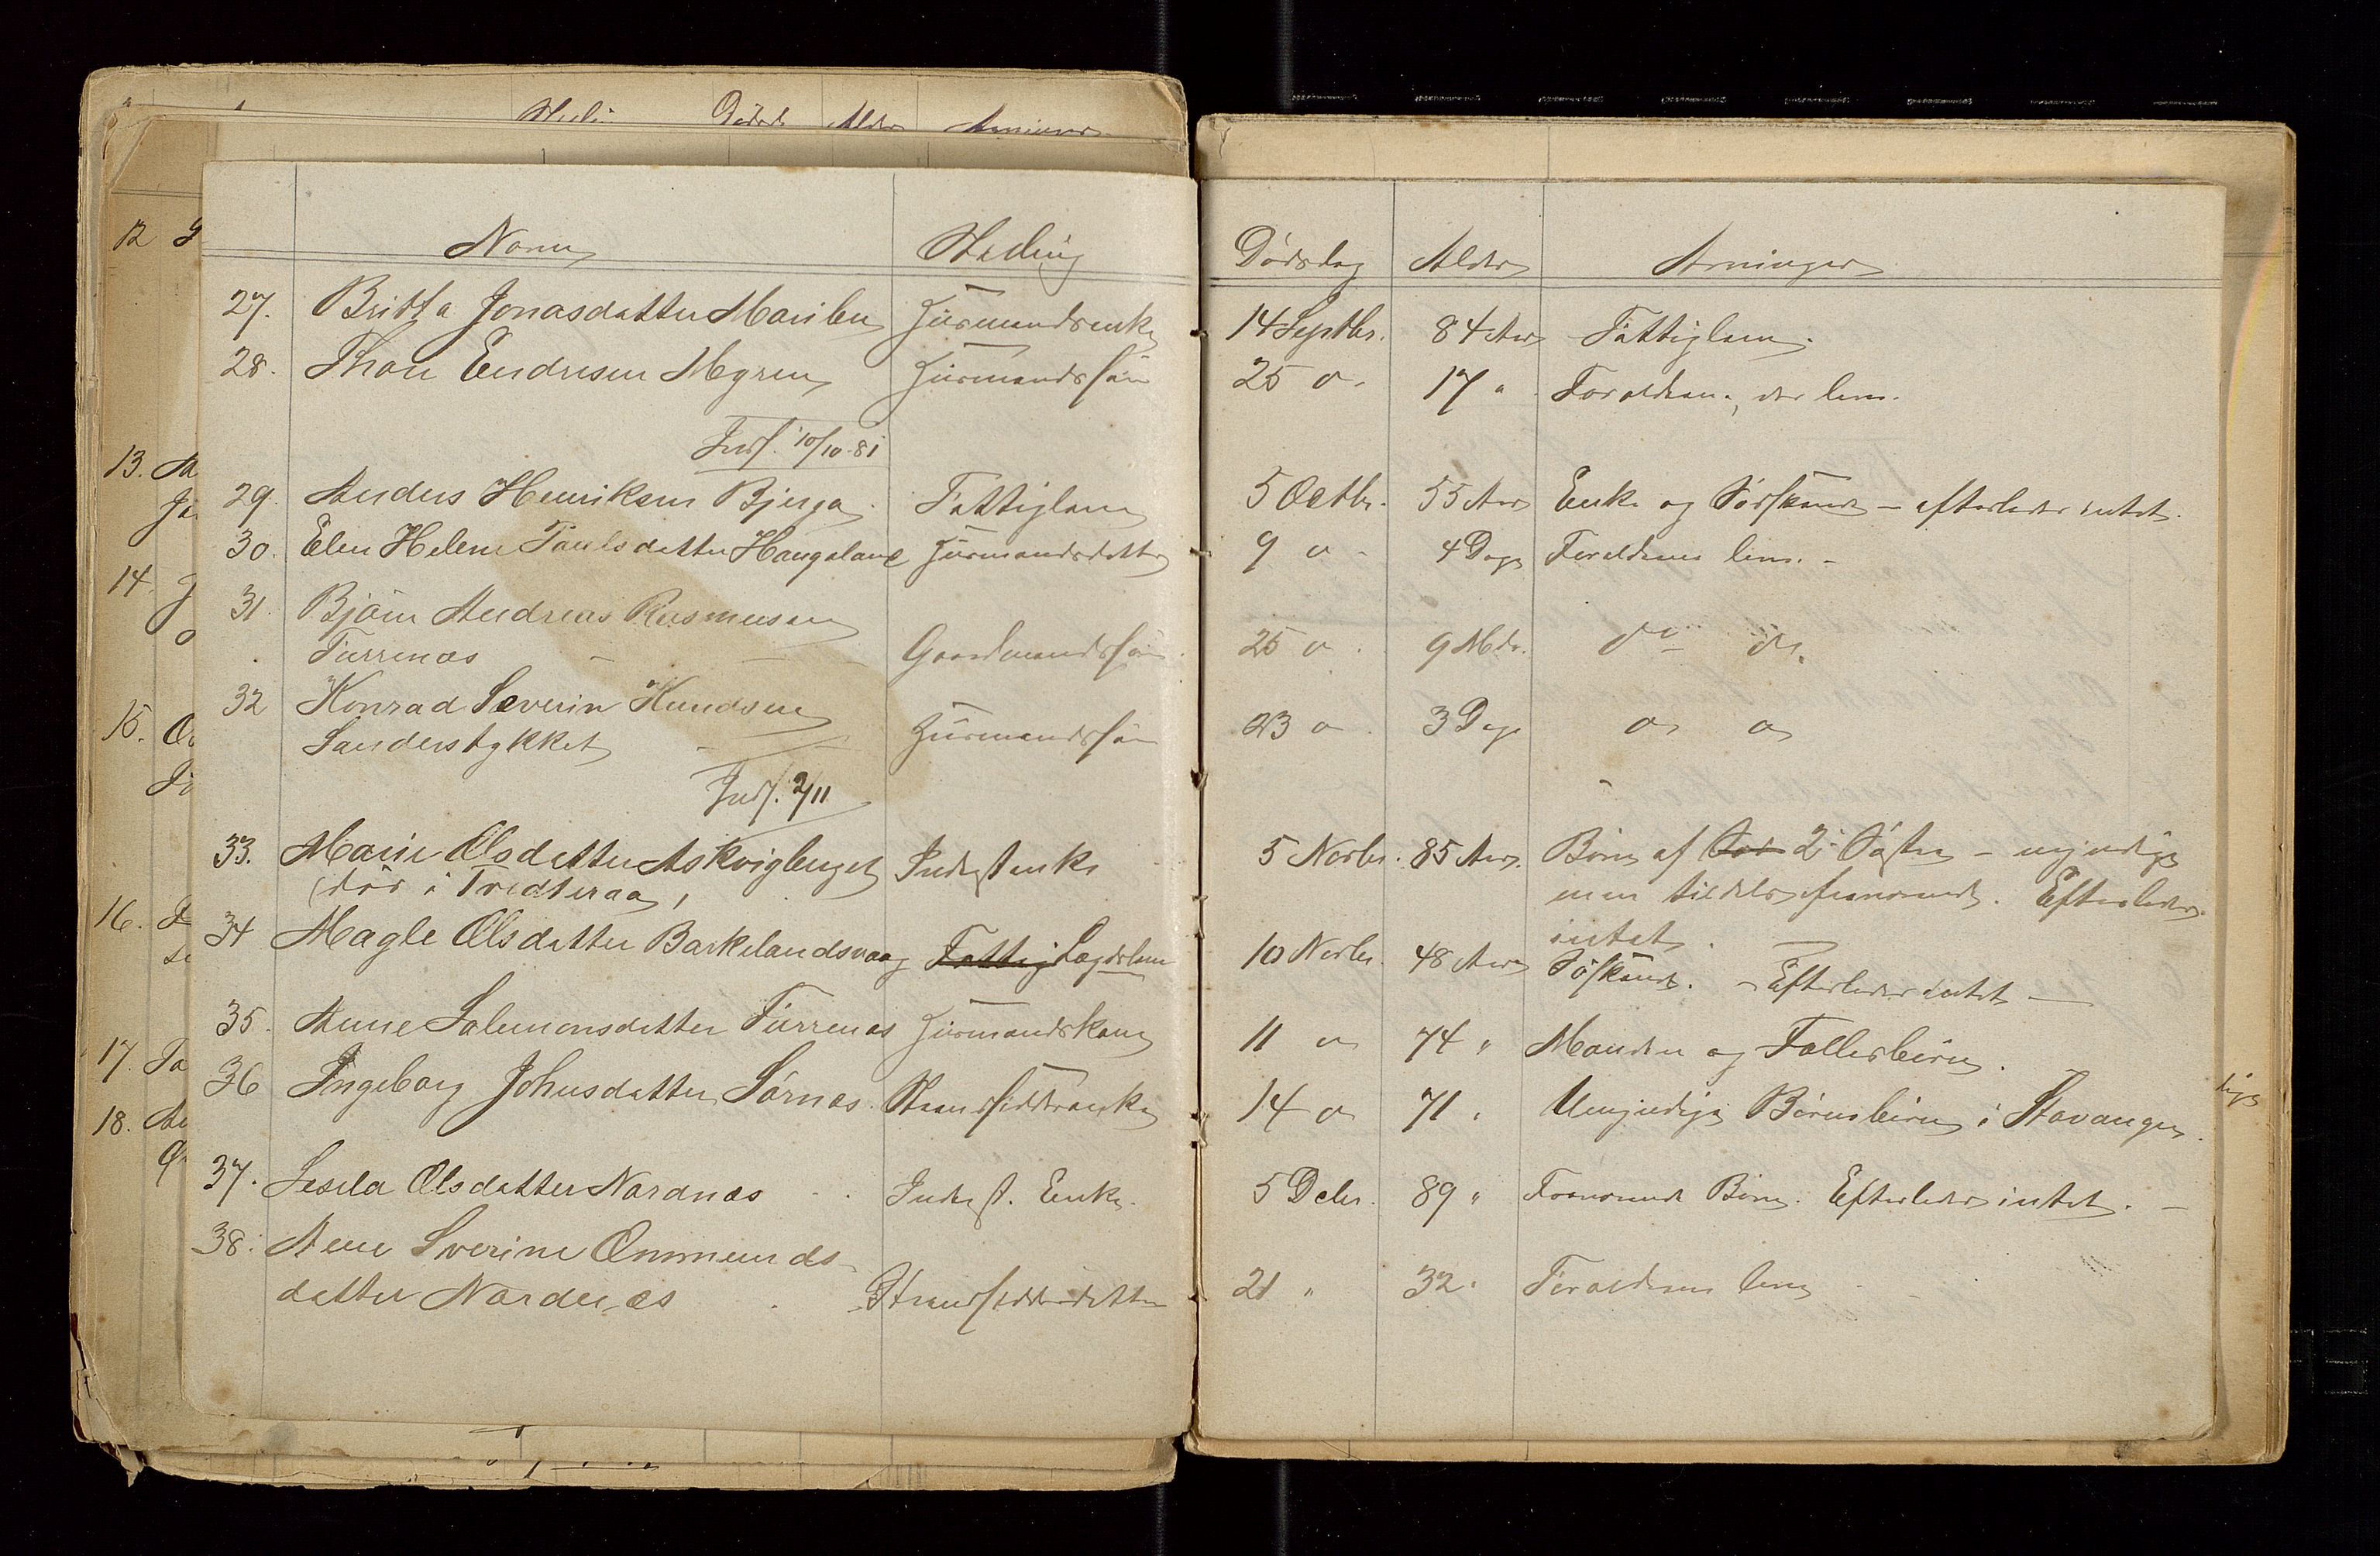 Navn Stilling Dødsdag Alder Arvinger
27. Britta Jonasdatter Huusmandsenke 14 Septbr. 84 Aar Fattiglem.
28. Endresen Myren Huusmandssøn 25 " 17 " Forældrene, der leve.
Indf. 10/10-81
29. Anders Henriksen Bjerga Fattiglem 5 Octbr. 55 Aar Enke og Sødskende – efterlader intet.
30. Elen Helene Paulsdatter Haugeland Huusmandsdatter 9 " 4 Dage Forældrene leve. –
31. Bjørn Andreas Rasmussen
Turrenæs Gaardmandssøn 25 " 9 Mdr. do do
32 Konrad Severin Knudsen
Sanderstykket Huusmandssøn 23 " 3 Dage do do
Indf. 2/11
33. Marie Olsdatter Askvigberget Inderstenke 5 Novbr. 85 Aar. Børn af 2 Søstre – umyndige
(død i Tvedteraa) men tildels fraværende. Efterlader
intet.
34 Magle Olsdatter Barkelandsvaag Fattig Lægdslem 10 Novbr. 48 Aar Sødskende. – Efterlader intet –
35. Anne Salemonsdatter Turrenæs Huusmandskone 11 " 74 " Manden og Fællesbørn.
36 Ingeborg Johnsdatter Sørnes. Strandsidderenke 14 " 71 " Umyndige Børnebørn i Stavanger.
37. Sesela Olsdatter Nordnæs Inderst. Enke. 5 Debr. 89 " Fraværende Børn. Efterlader intet. –
38. Ane Sverine Ommunds-
datter Nordnæs Strandsidderdatter 21 " 32 " Forældrene leve